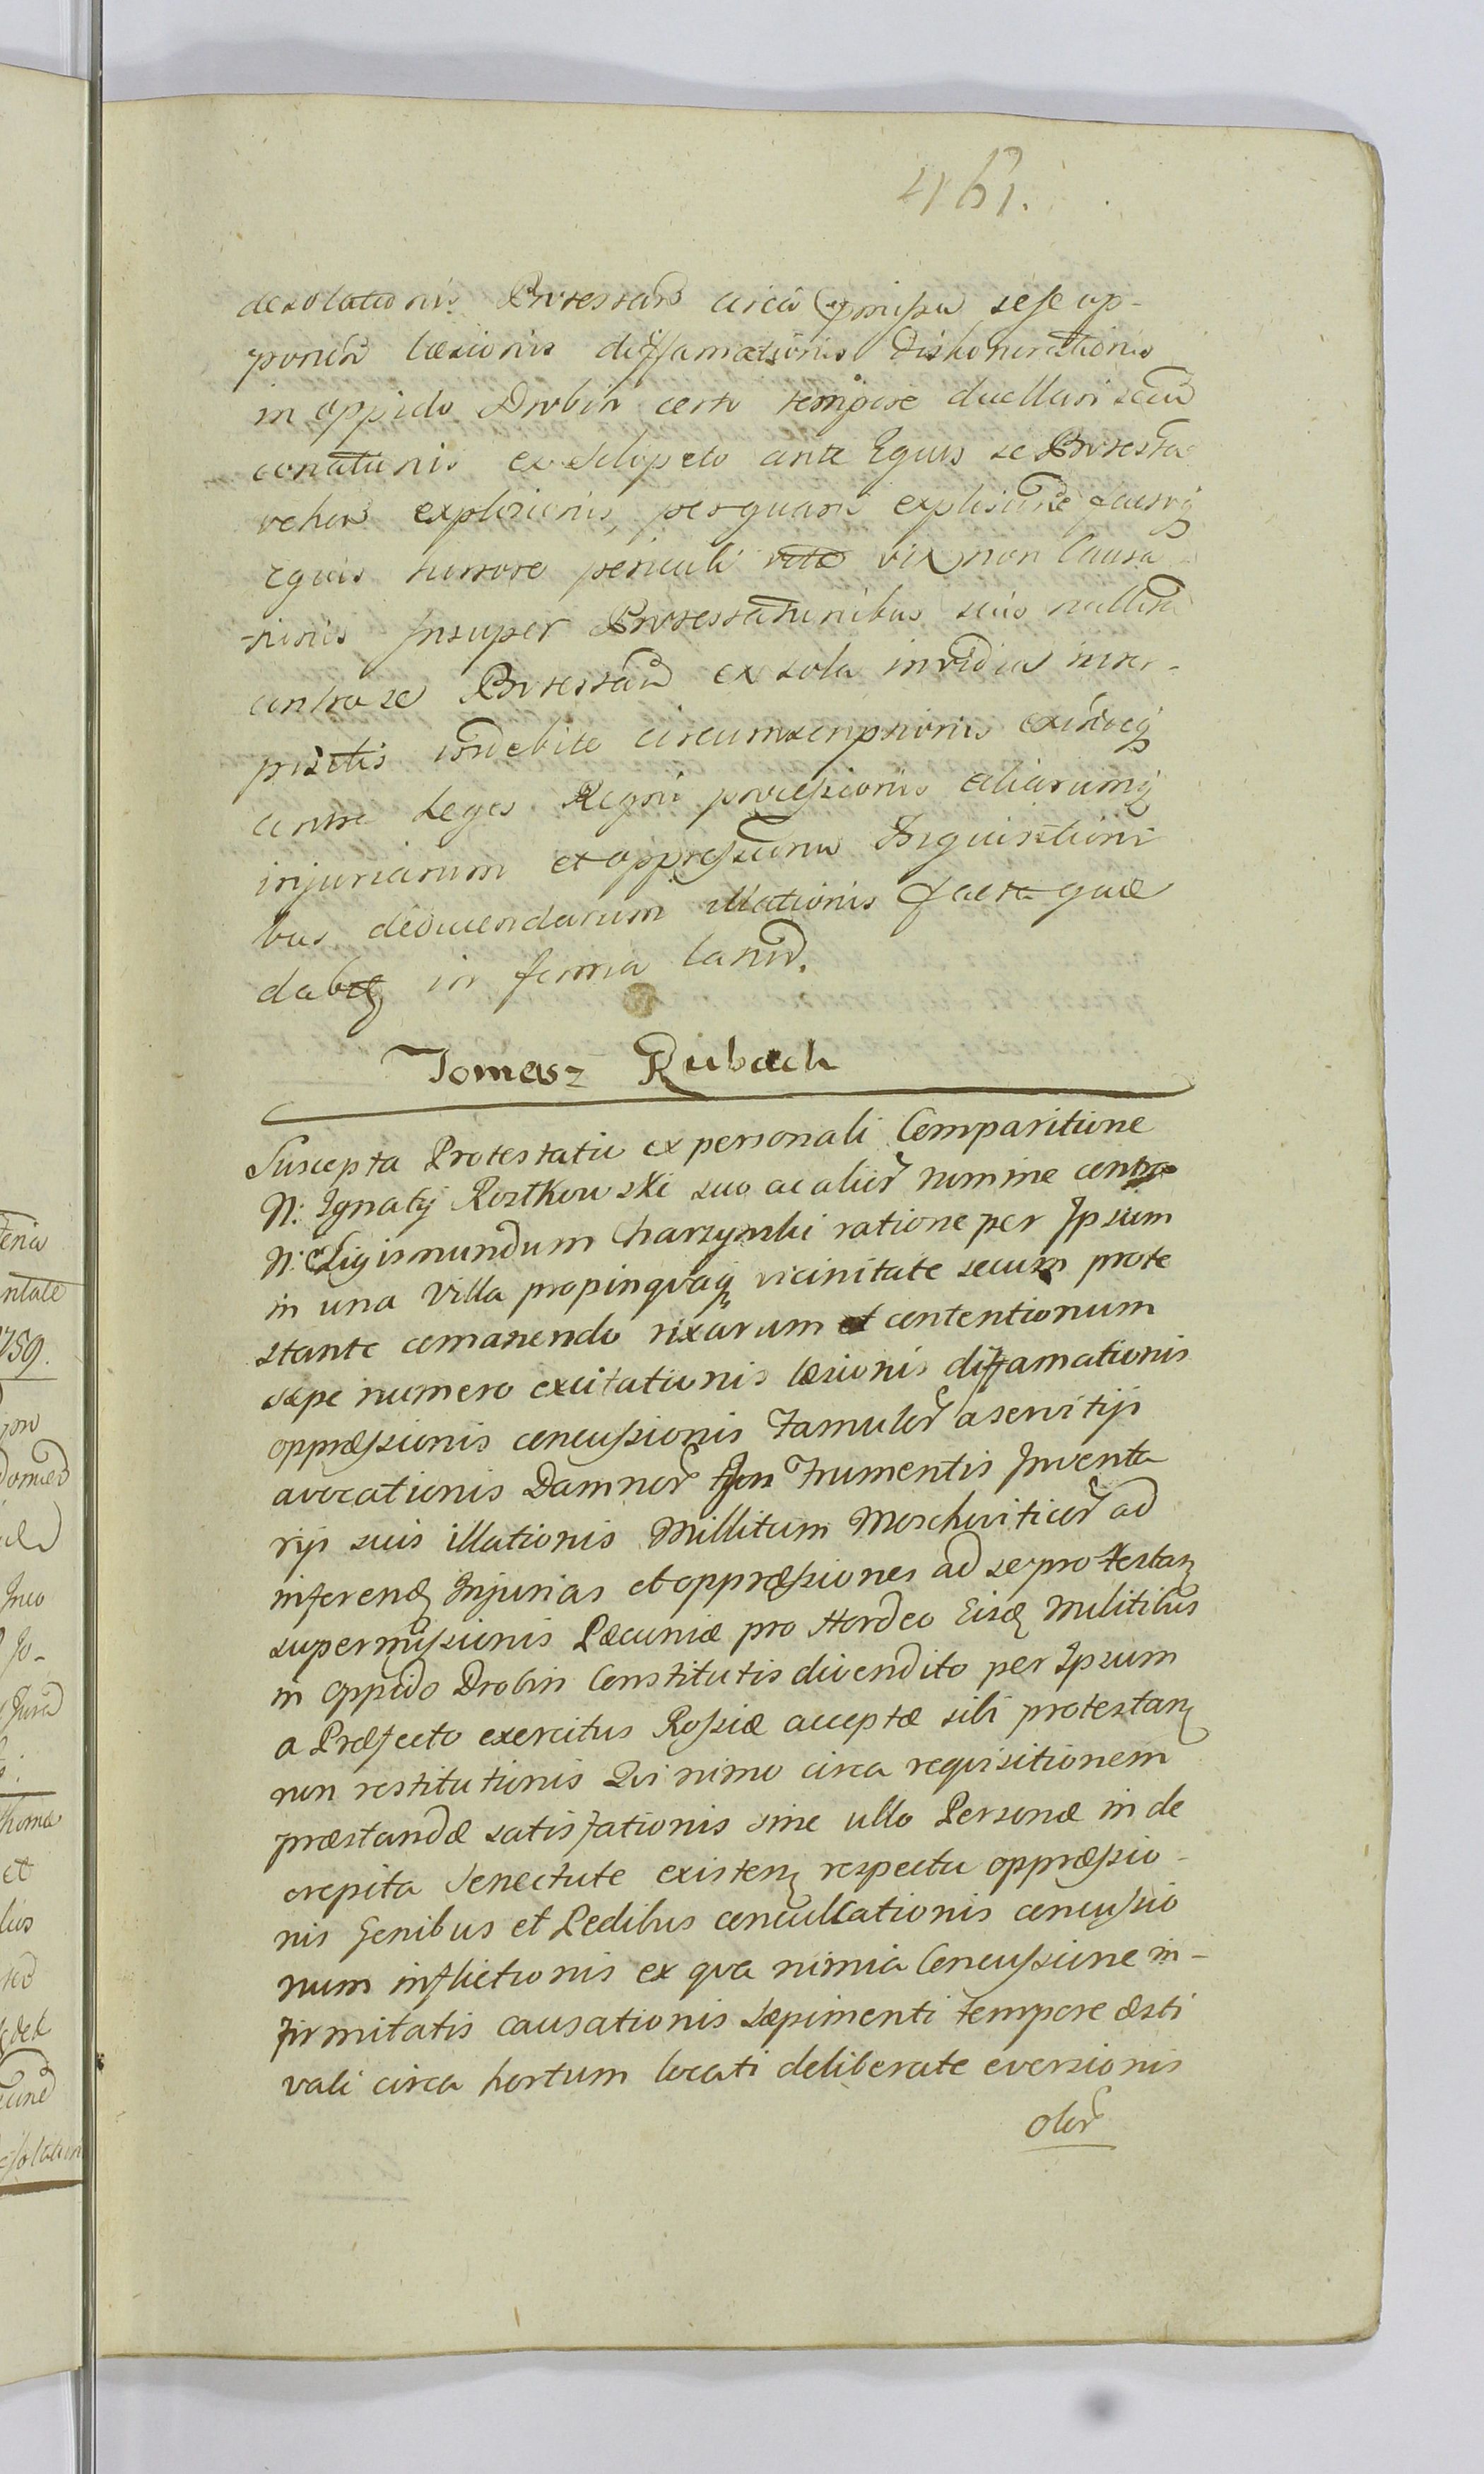 461.
desolationis Protestans circa præmissa sese op-
ponend læsionis diffamationis dishonorationis
in oppido Drobin certo tempore duellari secum
conationis ex Sclopeto ante Equis se Protestan
vehen explosionis, per quam explosionem factisq
equis terrore periculi vitæ vix non Causa
tionis Insuper Protestationibus suis
contra se Protestand ex sola invidia inter-
positis indebite circumscriptionis
contra Leges Regni processionis aliarumq
injuriarum et oppressionum Inquisitioni
bus deducendarum illationis facta quæ
dabq in forma
Tomasz Rubach
Suscepta Protestatio ex personali Comparitione
N: Ignatij Rostkowski suo ac alior nomine contra
N: Sigismundum Charzynski ratione per Ipsum
in una Villa propinqvaq vicinitate secum prote
stante comanendo rixarum et contentionum
sæpe numero excitationis læsionis diffamationis
oppræssionis concussionis Famulor a servitijs
avocationis Damnor Frumentis Inventa
rijs suis illationis Millitum Moschoviticor ad
inferend Injurias et oppræssiones ad se protestan
supermissionis Pæcuniæ pro Hordeo Eisd Militibus
in Oppido Drobin Constitutis divendito per Ipsum
a Præfecto exercitus Rossiæ acceptæ sibi protestan
non restitutionis Qvinimo circa reqvisitionem
præstandæ satisfationis sine ullo Personæ in de
crepita Senectute existen respectu oppræssio-
nis Genibus et Pedibus conculcationis concussio
num inflictionis ex qva nimia Concussione in-
firmitatis causationis sæpimenti tempore æsti
vali circa hortum locati deliberate eversionis
olor